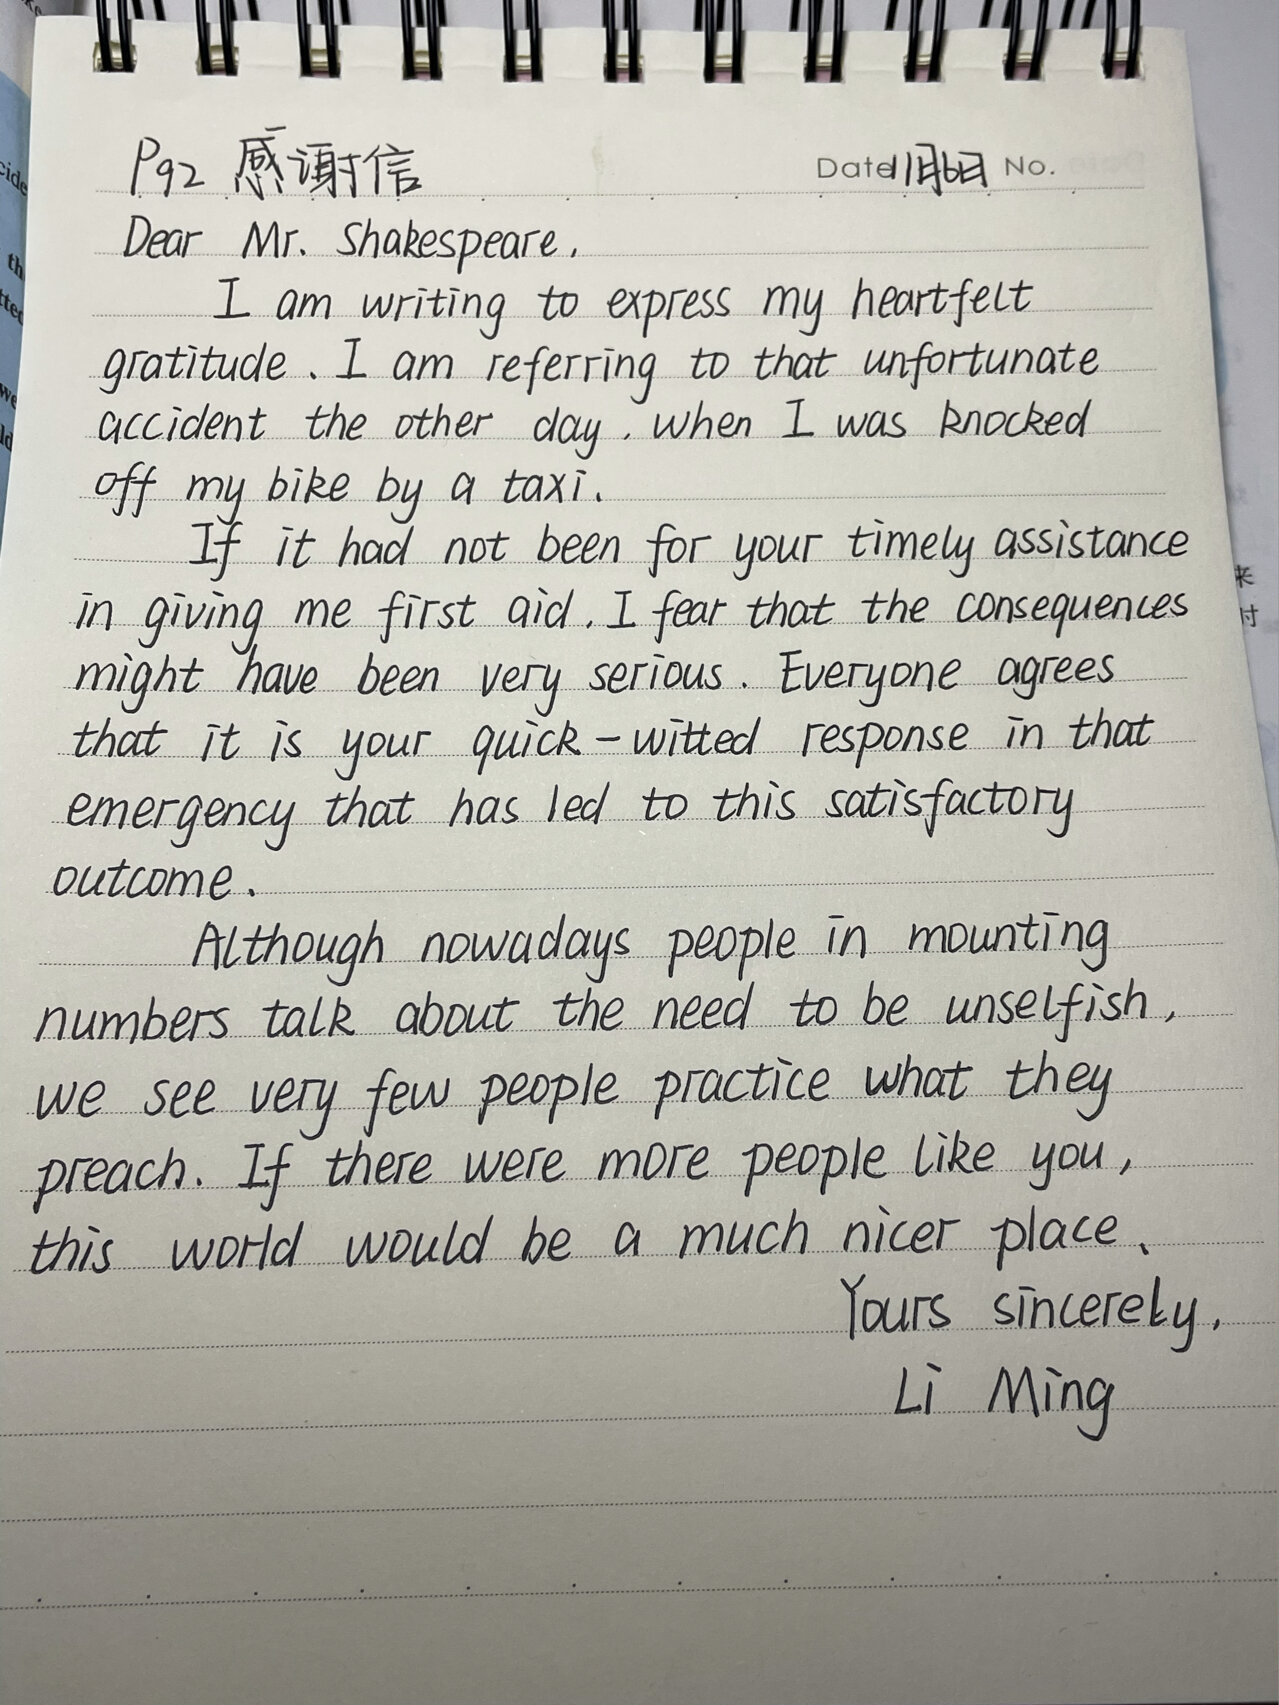 P92 感谢信
Date 11月6日 No.
Dear Mr. Shakespeare,
I am writing to express my heartfelt
gratitude. I am referring to that unfortunate
accident the other day. when I was knocked
off my bike by a taxi.
If it had not been for your timely assistance
in giving me first aid, I fear that the consequences
might have been very serious. Everyone agrees
that it is your quick-witted response in that
emergency that has led to this satisfactory
outcome.
Although nowadays people in mounting
numbers talk about the need to be unselfish,
we see very few people practice what they
preach. If there were more people like you,
this world would be a much nicer place.
Yours sincerely,
Li Ming
来
时